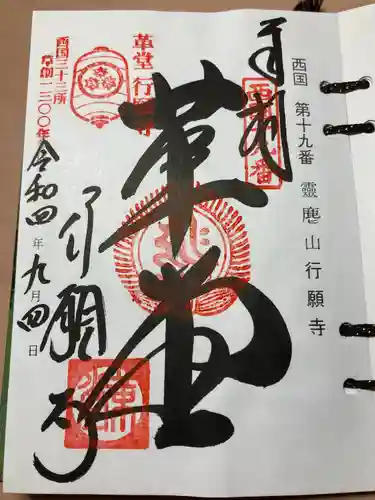 西国 第十九番 靈麀山行願寺
奉拝
西国十九番
革堂
革堂 行願寺
西国三十三所
草創一三〇〇年
行願寺
令和四年九月四日